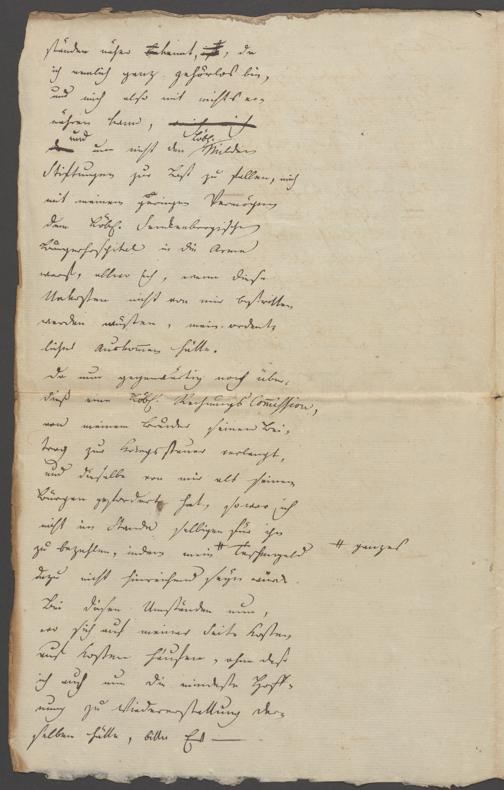 ständen näher bekannt, da
ich nemlich ganz gehörlos bin,
und mich also mit nichts er-
nähren kann, mich ich
und um nicht den löbl. Milden
Stiftungen zur Last zu fallen, mich
mit meinem geringen Vermögen
dem Löbl. Senckenbergischen
Bürgerhospital in die Arme
warf, allwo ich, wenn diese
Unkosten nicht von mir bestritten
werden müßten, mein ordent-
liches Auskommen hätte.
Da nun gegenwärtig noch über-
dieß eine Löbl. Rechnungs Comission,
von meinem Bruder seinen Bei-
trag zur Kriegssteuer verlangt,
und dieselbe von mir als seinem
Bürgen gefordert hat, so war ich
nicht im Stande selbigen für ihn
zu bezahlen, indem mein # Taschengeld # ganzes
dazu nicht hinreichend seyn würde.
Bei diesen Umständen nun,
wo sich auf meiner Seite Kosten
auf Kosten häufen, ohne daß
ich auch nur die mindeste Hoff-
nung zu Wiedererstattung der-
selben hätte, bitte Ew —